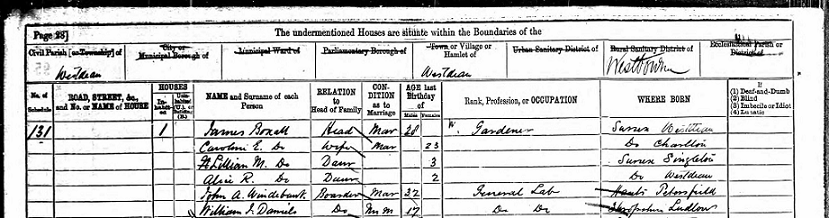 Page 23] The undermentioned Houses are situate within the Boundaries of the
Civil Parish [or Township] of City or Municipal Borough of Municipal Ward of Parliamentary Borough of Town or Village or Hamlet of Urban Sanitary District of Rural Sanitary District of Ecclesiastical Parish or District of
Westdean Westdean Westbourne
No. of Schedule ROAD, STREET, &c., and No. or NAME of HOUSE HOUSES Inhabited Uninhabited (U.), or Building (B.) NAME and Surname of each Person RELATION to Head of Family CONDITION as to Marriage AGE last Birthday of Males Females Rank, Profession, or OCCUPATION WHERE BORN If (1) Deaf-and-Dumb (2) Blind (3) Imbecile or Idiot (4) Lunatic
131 1 James Boxall Head Mar 28 Gardener Sussex Westdean
Caroline E. Do Wife Mar 23 Do Charlton
Lillian M. Do Daur 3 Sussex Singleton
Alice R. Do Daur 2 Do Westdean
John A. Windebank Boarder Mar 32 General Lab Hants Petersfield
William J. Daniels Do Un M 17 Do Do Shropshire Ludlow